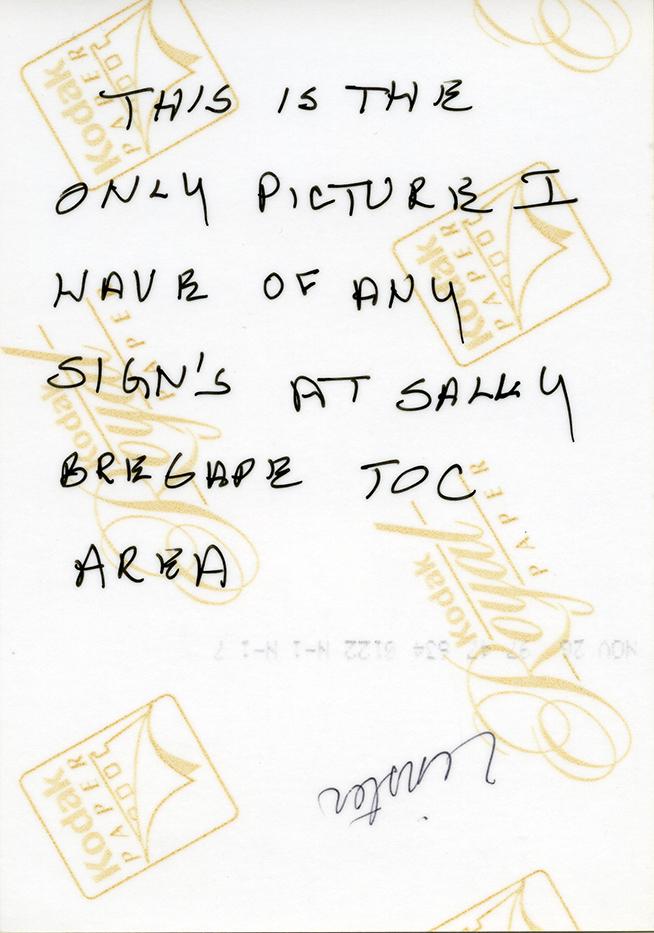 THIS IS THE
ONLY PICTURE I
HAVE OF ANY
SIGN'S AT SALLY
BREGADE TOC
AREA
Kodak
PAPER
Kodak
PAPER
Kodak
Royal
PAPER
Kodak
Royal
PAPER
NOV 26 97 47 634 0122 N-1 N-1 7
Leinster
Kodak
PAPER